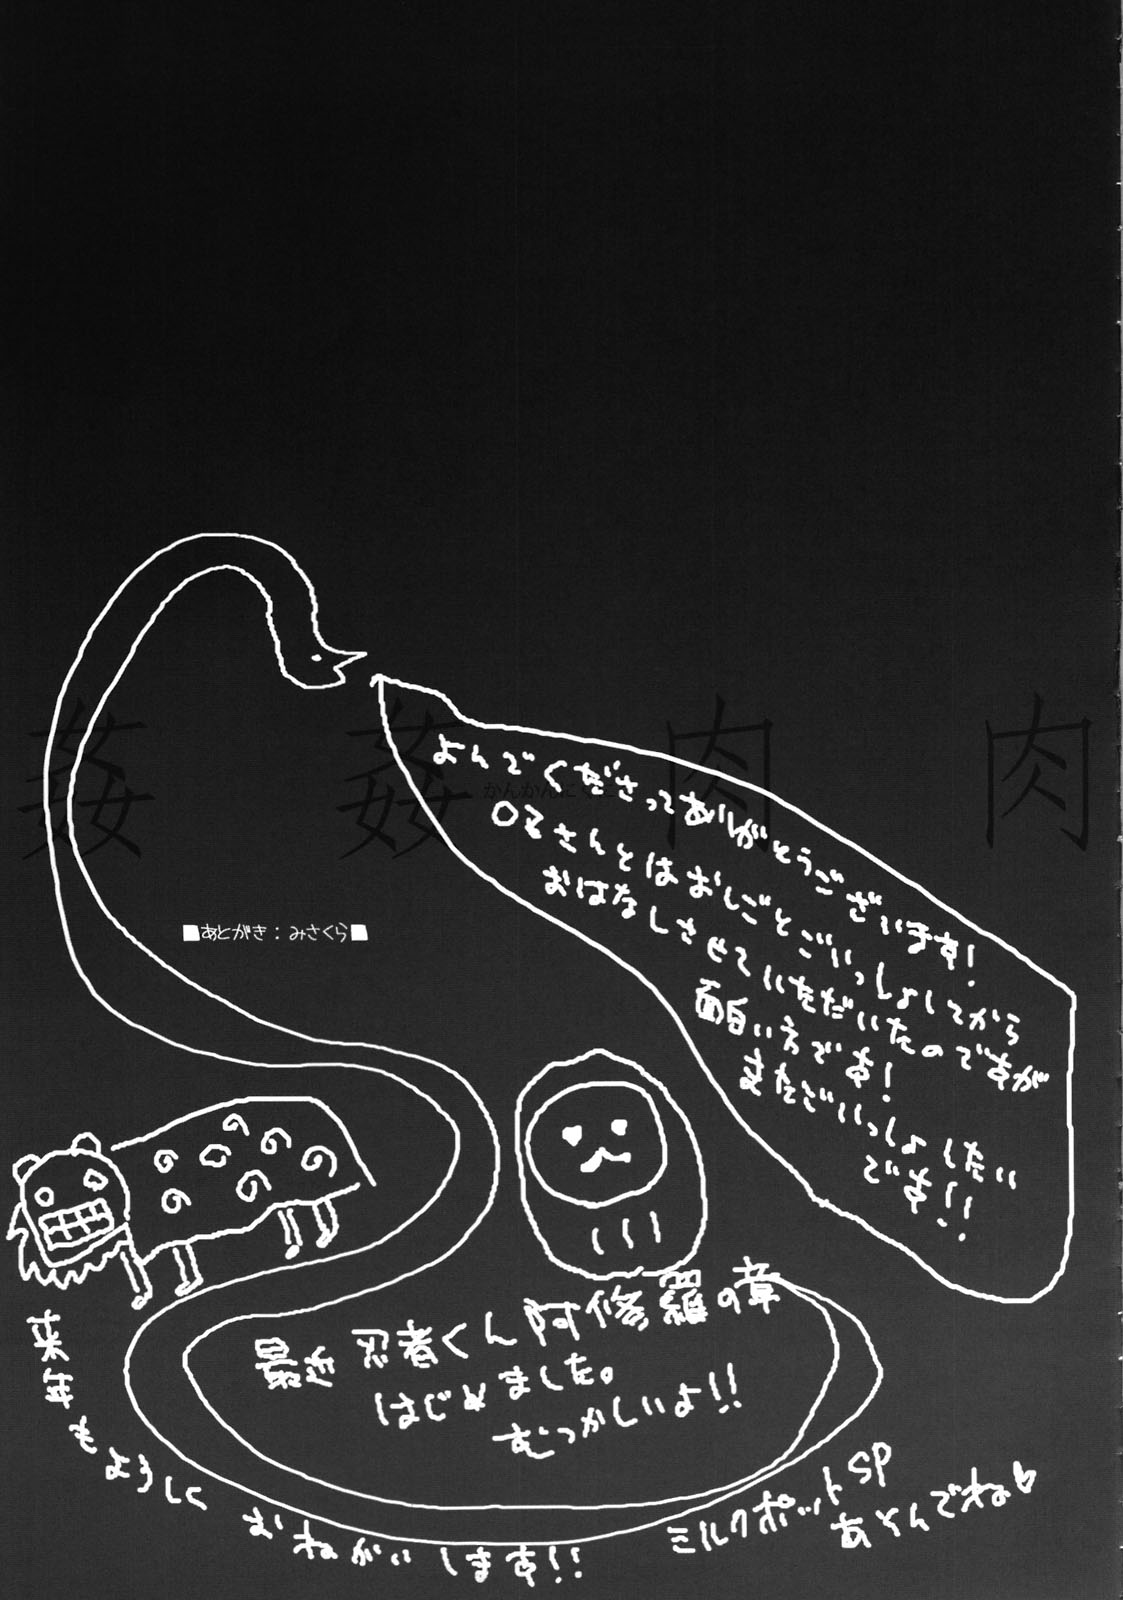 よんでくださってありがとうございます!
OZさんとはおしごとごいっしょしてから
おはなしさせていただいたのですが
面白い方です!
またごいっしょしたい
です!!
姦 姦 肉 肉
■あとがき：みさくら■
最近 忍者くん 阿修羅の章
はじめました。
むつかしいよ!!
来年もよろしく おねがいします!!
ミルクポットSP
あそんでね♡